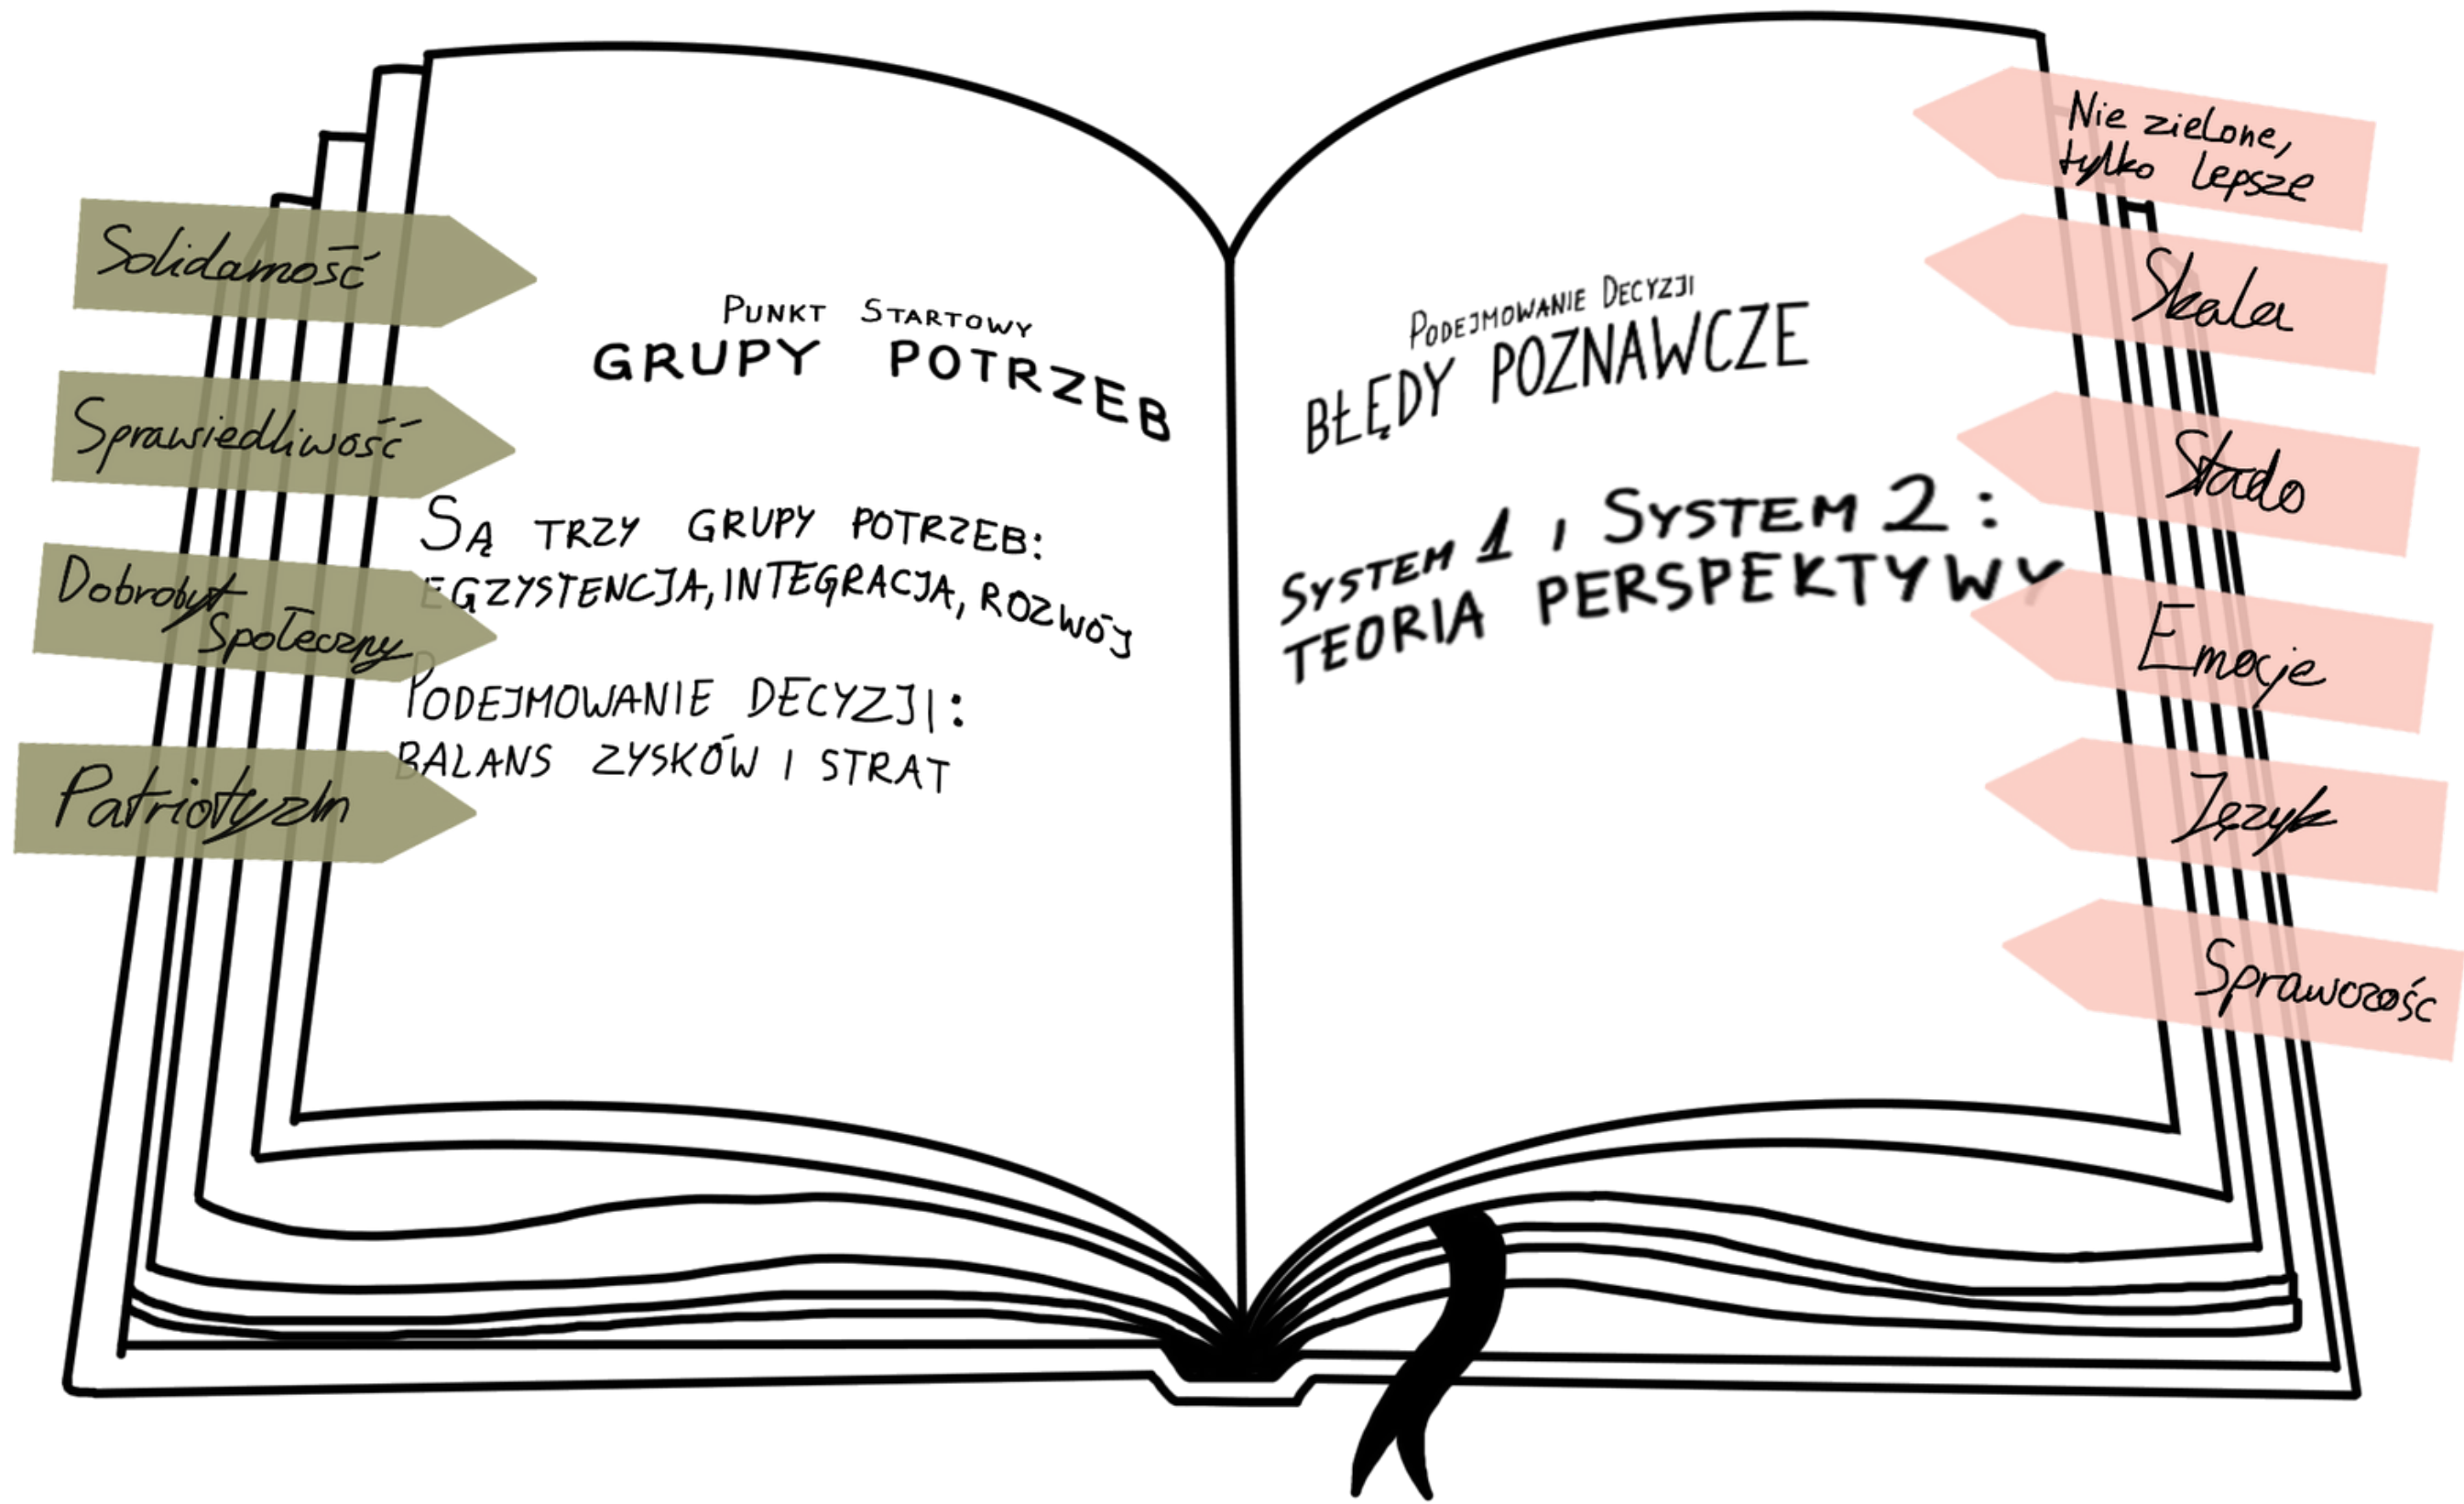 Solidarność
Sprawiedliwość
Dobrobyt
Społeczny
Patriotyzm
PUNKT STARTOWY
GRUPY POTRZEB
SĄ TRZY GRUPY POTRZEB:
EGZYSTENCJA, INTEGRACJA, ROZWÓJ
PODEJMOWANIE DECYZJI:
BALANS ZYSKÓW I STRAT
PODEJMOWANIE DECYZJI
BŁĘDY POZNAWCZE
SYSTEM 1 I SYSTEM 2:
TEORIA PERSPEKTYWY
Nie zielone,
tylko lepsze
Skala
Stado
Emocje
Język